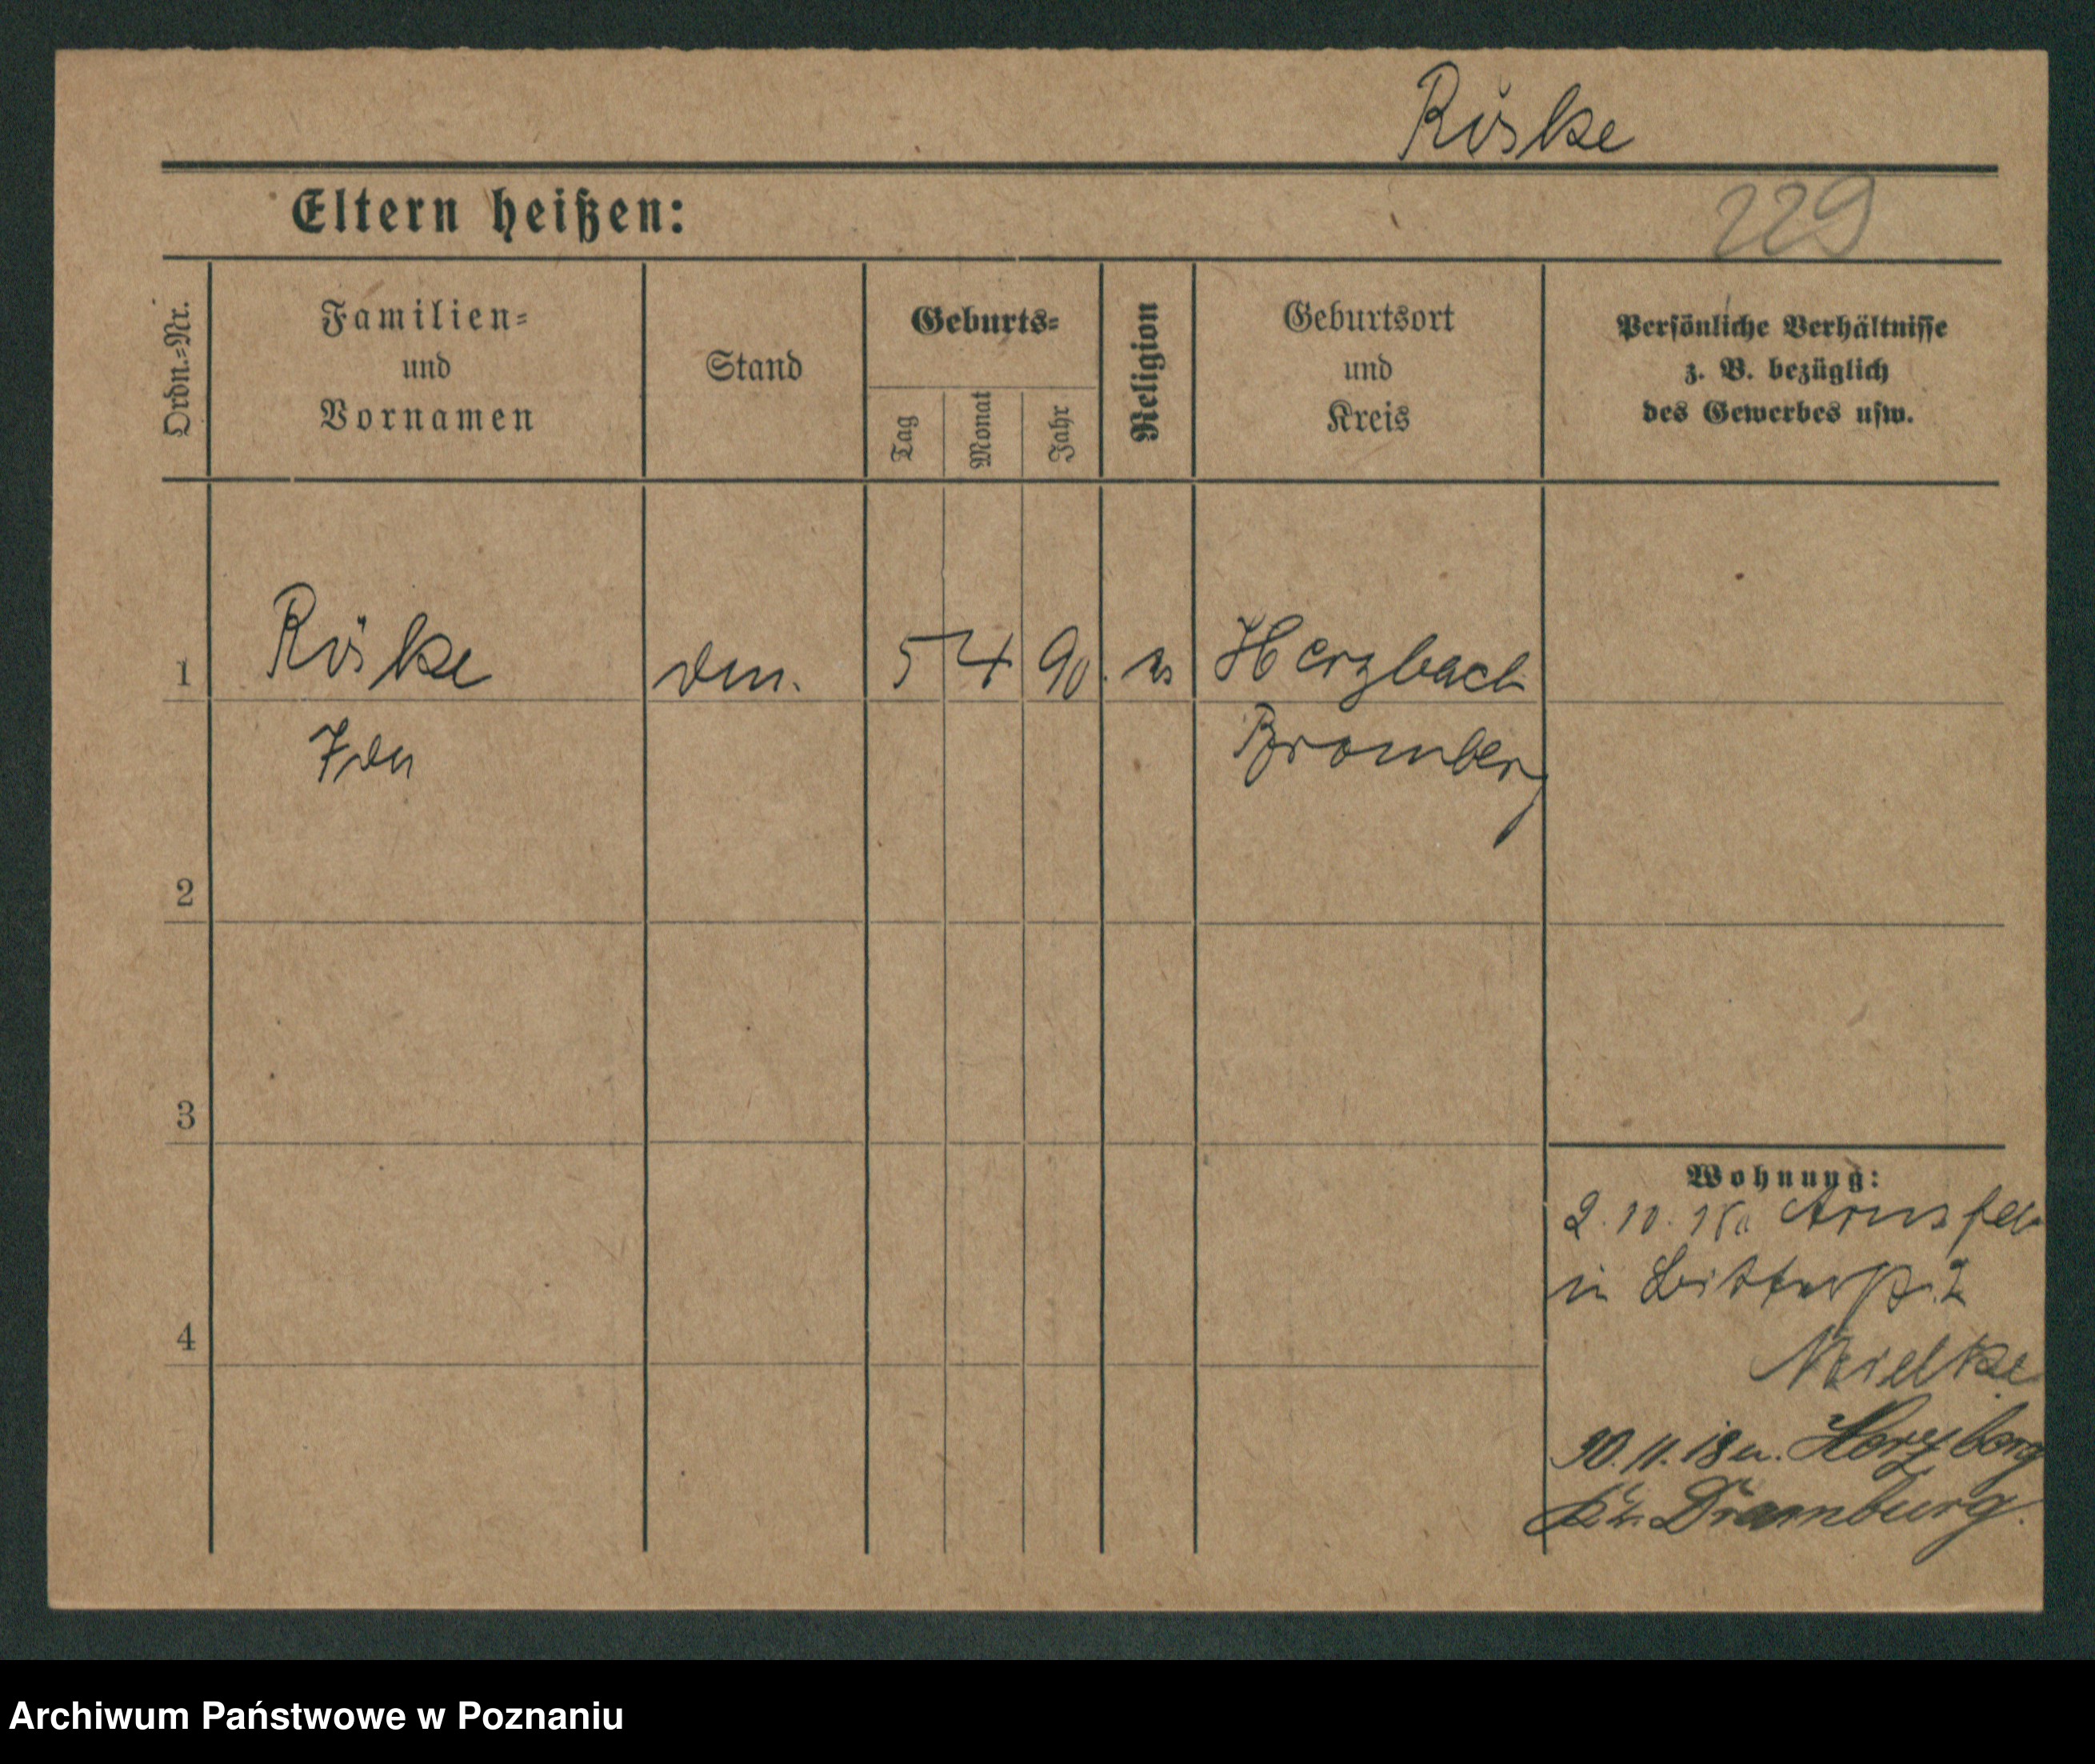 Röske
229
Eltern heißen:
Ordn.=Nr.
Familien=
und
Vornamen
Stand
Geburts=
Tag
Monat
Jahr
Religion
Geburtsort
und
Kreis
Persönliche Verhältnisse
z. B. bezüglich
des Gewerbes usw.
1 Röske 5 4 90. Herzbach
Ida Bromberg
2
3
4
Wohnung:
2.10.18. Arnsfeld
in
Mielke
30.11.18 n. Herzberg
Kr. Dramburg.
Archiwum Państwowe w Poznaniu